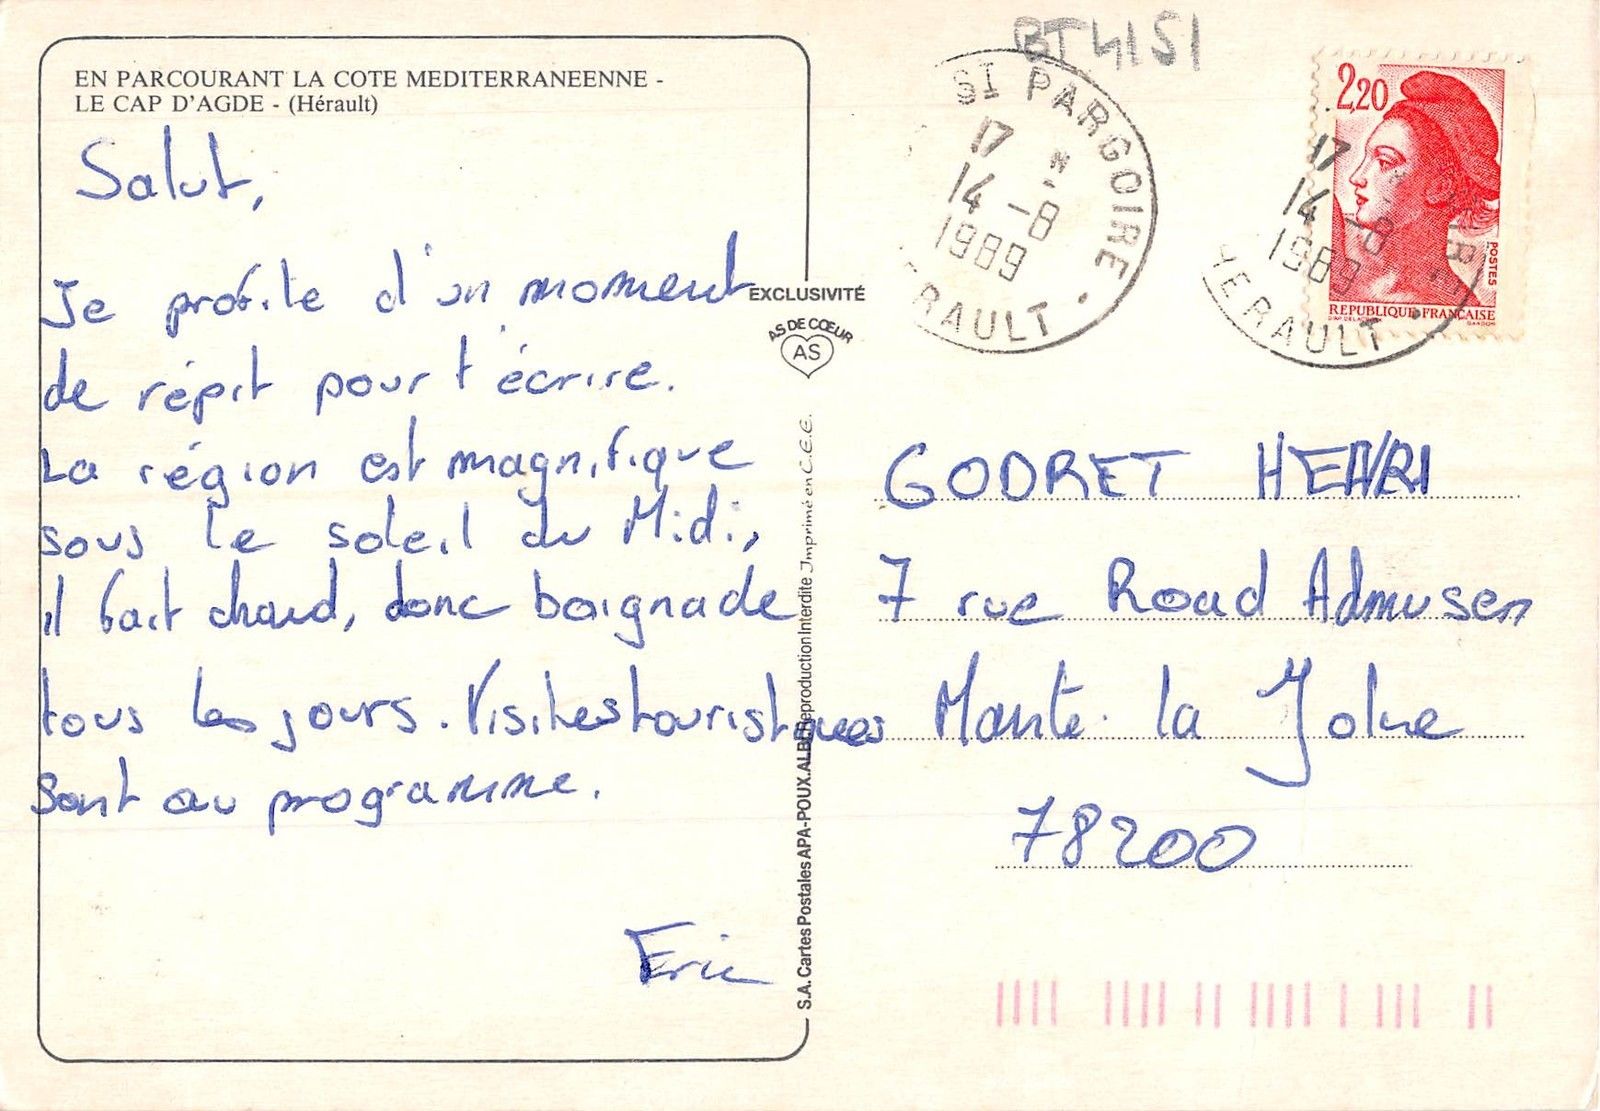 EN PARCOURANT LA COTE MEDITERRANEENNE -
LE CAP D'AGDE - (Hérault)
Salut,
Je profite d'un moment
de répit pour t'écrire.
La région est magnifique
sous le soleil du Midi,
il fait chaud, donc baignade
tous les jours. Visites touristiques
sont au programme.
Eric
EXCLUSIVITÉ
AS DE CŒUR
AS
S.A. Cartes Postales APA-POUX. ALBI Reproduction Interdite Imprimé en C.E.E.
BT4151
ST PARGOIRE
17 H
14-8
1989
RAULT
2,20
POSTES
REPUBLIQUE FRANÇAISE
17
14-8
1989
HERAULT
GODRET HENRI
7 rue Road Admusen
Mante la Jolie
78200